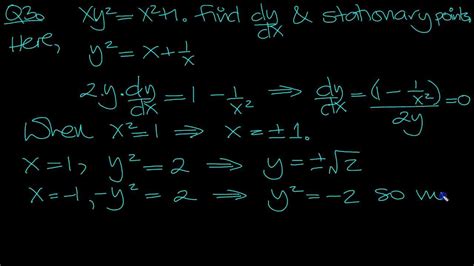 Q30 xy² = x²+1. find dy/dx & stationary points
Here, y² = x + 1/x
2.y.dy/dx = 1 - 1/x² ⟹ dy/dx = (1 - 1/x²)/2y = 0
When x² = 1 ⟹ x = ±1.
x = 1, y² = 2 ⟹ y = ±√2
x = -1, -y² = 2 ⟹ y² = -2 so